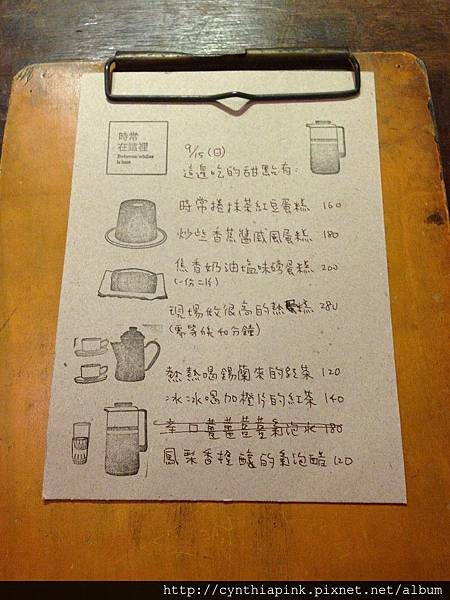 時常
在這裡
Between whiles
is here
9/15 (日)
這邊吃的甜點有:
時常捲抹茶紅豆蛋糕 160
炒些香蕉醬戚風蛋糕 180
焦香奶油塩味磅蛋糕 200
(一份二片)
現場做很高的熱蛋糕 280
(需等候40分鐘)
熱熱喝錫蘭來的紅茶 120
冰冰喝加橙片的紅茶 140
辛口薑薑薑薑氣泡水 180
鳳梨香橙釀的氣泡醋 120
http://cynthiapink.pixnet.net/album